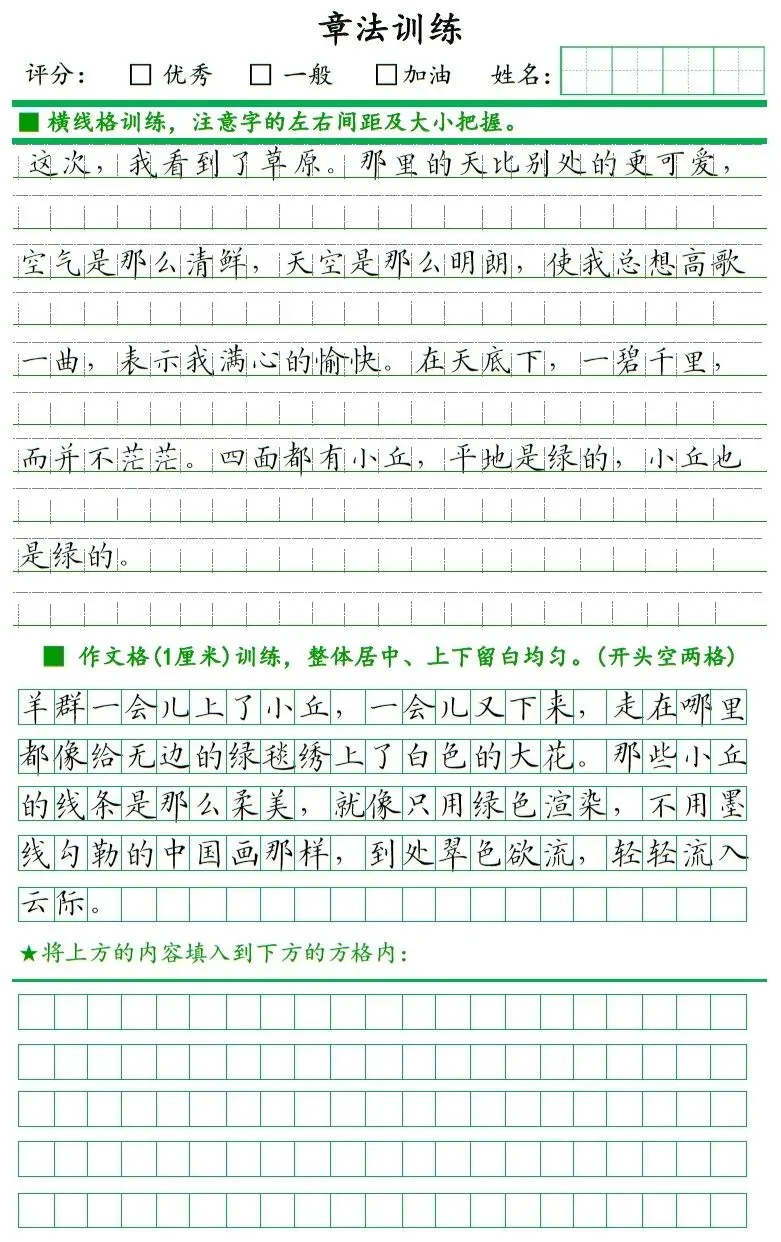 章法训练
评分： □ 优秀 □ 一般 □加油 姓名：
■ 横线格训练，注意字的左右间距及大小把握。
这次，我看到了草原。那里的天比别处的更可爱，
空气是那么清鲜，天空是那么明朗，使我总想高歌
一曲，表示我满心的愉快。在天底下，一碧千里，
而并不茫茫。四面都有小丘，平地是绿的，小丘也
是绿的。
■ 作文格(1厘米)训练，整体居中、上下留白均匀。(开头空两格)
羊群一会儿上了小丘，一会儿又下来，走在哪里
都像给无边的绿毯绣上了白色的大花。那些小丘
的线条是那么柔美，就像只用绿色渲染，不用墨
线勾勒的中国画那样，到处翠色欲流，轻轻流入
云际。
★将上方的内容填入到下方的方格内：